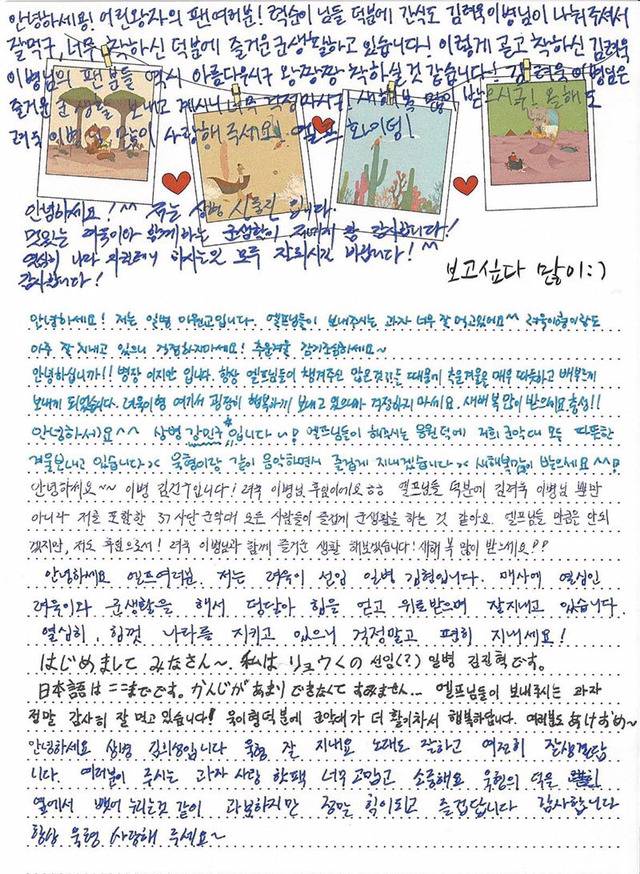 안녕하세용! 어린왕자의 팬여러분! 력순이 님들 덕분에 간식도 김려욱이병님이 나눠주셔서
잘먹구, 너무 착하신 덕분에 즐거운 군생활하고 있습니다! 이렇게 곱고 착하신 김려욱
이병님의 팬분들 역시 아름다우시구 왕짱짱 착하실것 같습니다! 김려욱 이병님은
즐거운 군생활 보내고 계시니 너무 걱정마시구 새해복 많이 받으시구! 올해도
려욱 이병 많이 사랑해 주세요! 엘프 화이팅!
안녕하세요! ^^ 저는 상병 입니다.
멋있는 려욱이와 함께하는 군생활이 재미지고 감사합니다!
열심히 나라 지킬테니 하시는일 모두 잘되시길 바랍니다! ^^
감사합니다!
보고싶다 많이 :)
안녕하세요! 저는 일병 이원교입니다. 엘프님들이 보내주시는 과자 너무 잘 먹고있어요^^ 려욱이형이랑도
아주 잘 지내고 있으니 걱정하지마세요! 추운겨울 감기조심하세요~
안녕하십니까!! 병장 이지만 입니다. 항상 엘프님들이 챙겨주신 많은것들 때문에 추운겨울을 매우 따뜻하고 배부르게
보내게 되었습니다. 려욱이형 여기서 굉장히 행복하게 보내고 있으니까 걱정하지 마세요. 새해복 많이 받으세요 충성!!
안녕하세요^^ 상병 강민구 입니다~! 엘프님들이 해주시는 응원 덕에 저희 군악대 모두 따뜻한
겨울보내고 있습니다>< 욱형이랑 같이 음악하면서 즐겁게 지내겠습니다>< 새해복많이 받으세요^^!
안녕하세요~~ 이병 김건우입니다! 려욱 이병님 후임이에요ㅎㅎ 엘프님들 덕분에 김려욱 이병님 뿐만
아니라 저를 포함한 37사단 군악대 모든 사람들이 즐겁게 군생활을 하는 것 같아요. 엘프님들 만큼은 안되
겠지만, 저도 후임으로서! 려욱 이병님과 함께 즐거운 생활 해보겠습니다! 새해 복 많이 받으세요??
안녕하세요 엘프여러분. 저는 려욱이 선임 일병 김형입니다. 매사에 열심인
려욱이와 군생활을 해서 덩달아 힘을 얻고 위로받으며 잘지내고 있습니다.
열심히 힘껏 나라를 지키고 있으니 걱정말고 편히 지내세요!
はじめまして みなさん~. 私は リョウくの 선임(?) 일병 김진혁です。
日本語は ここまでです。かんじが あまり できなくて すみません... 엘프님들이 보내주시는 과자
정말 감사히 잘 먹고 있습니다! 욱이형덕분에 군악대가 더 활기차서 행복하답니다. 여러분도 あけおめ~
안녕하세요 상병 김의성입니다 욱형 잘 지내요 노래도 잘하고 여전히 잘생겼답
니다. 여러분이 주시는 과자 사랑 핫팩 너무 고맙고 소중해요 욱형의 덕을
옆에서 뺏어 누리는것 같이 과분하지만 정말 힘이되고 즐겁답니다 감사합니다
항상 욱형 사랑해 주세요~